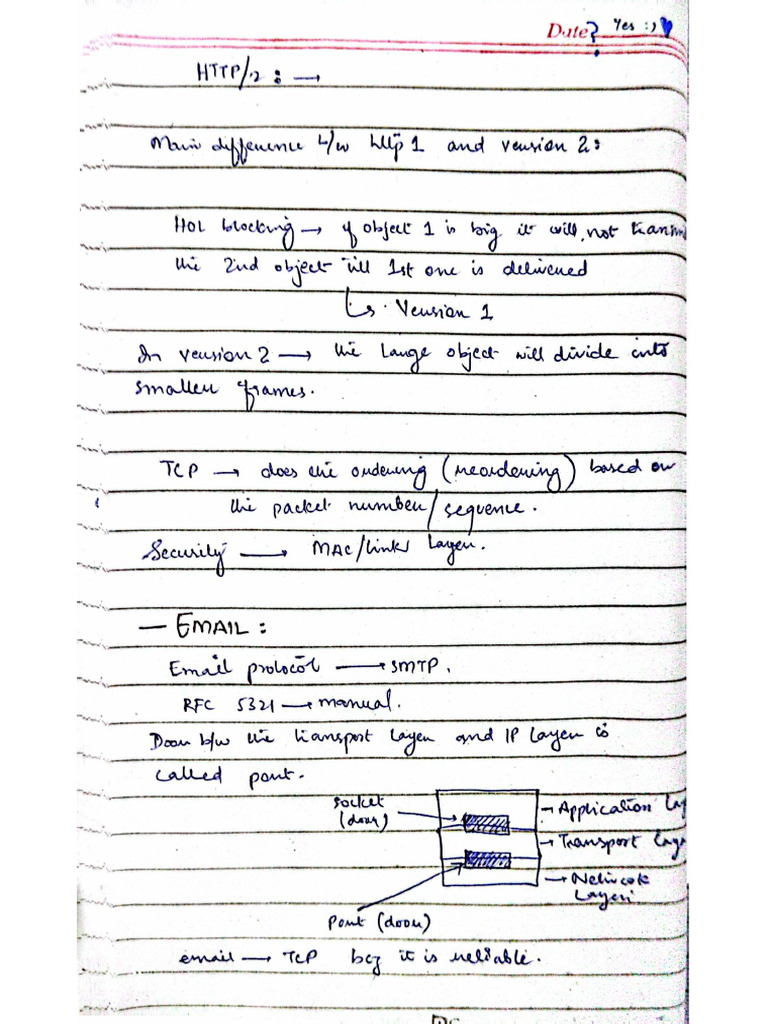 Date? Yes :)
HTTP/2 : →
Main difference b/w http 1 and version 2:
HOL blocking → if object 1 is big it will not transm
the 2nd object till 1st one is delivered
↳ Version 1
In version 2 → the large object will divide into
smaller frames.
TCP → does the ordering (reordering) based on
the packet number/sequence.
Security → MAC/link layer.
— EMAIL :
Email protocol → SMTP.
RFC 5321 → manual.
Door b/w the transport layer and IP layer is
called port.
socket
(door)
→ Application lay
→ Transport laye
→ Network
layer
Port (door)
email → TCP bcz it is reliable.